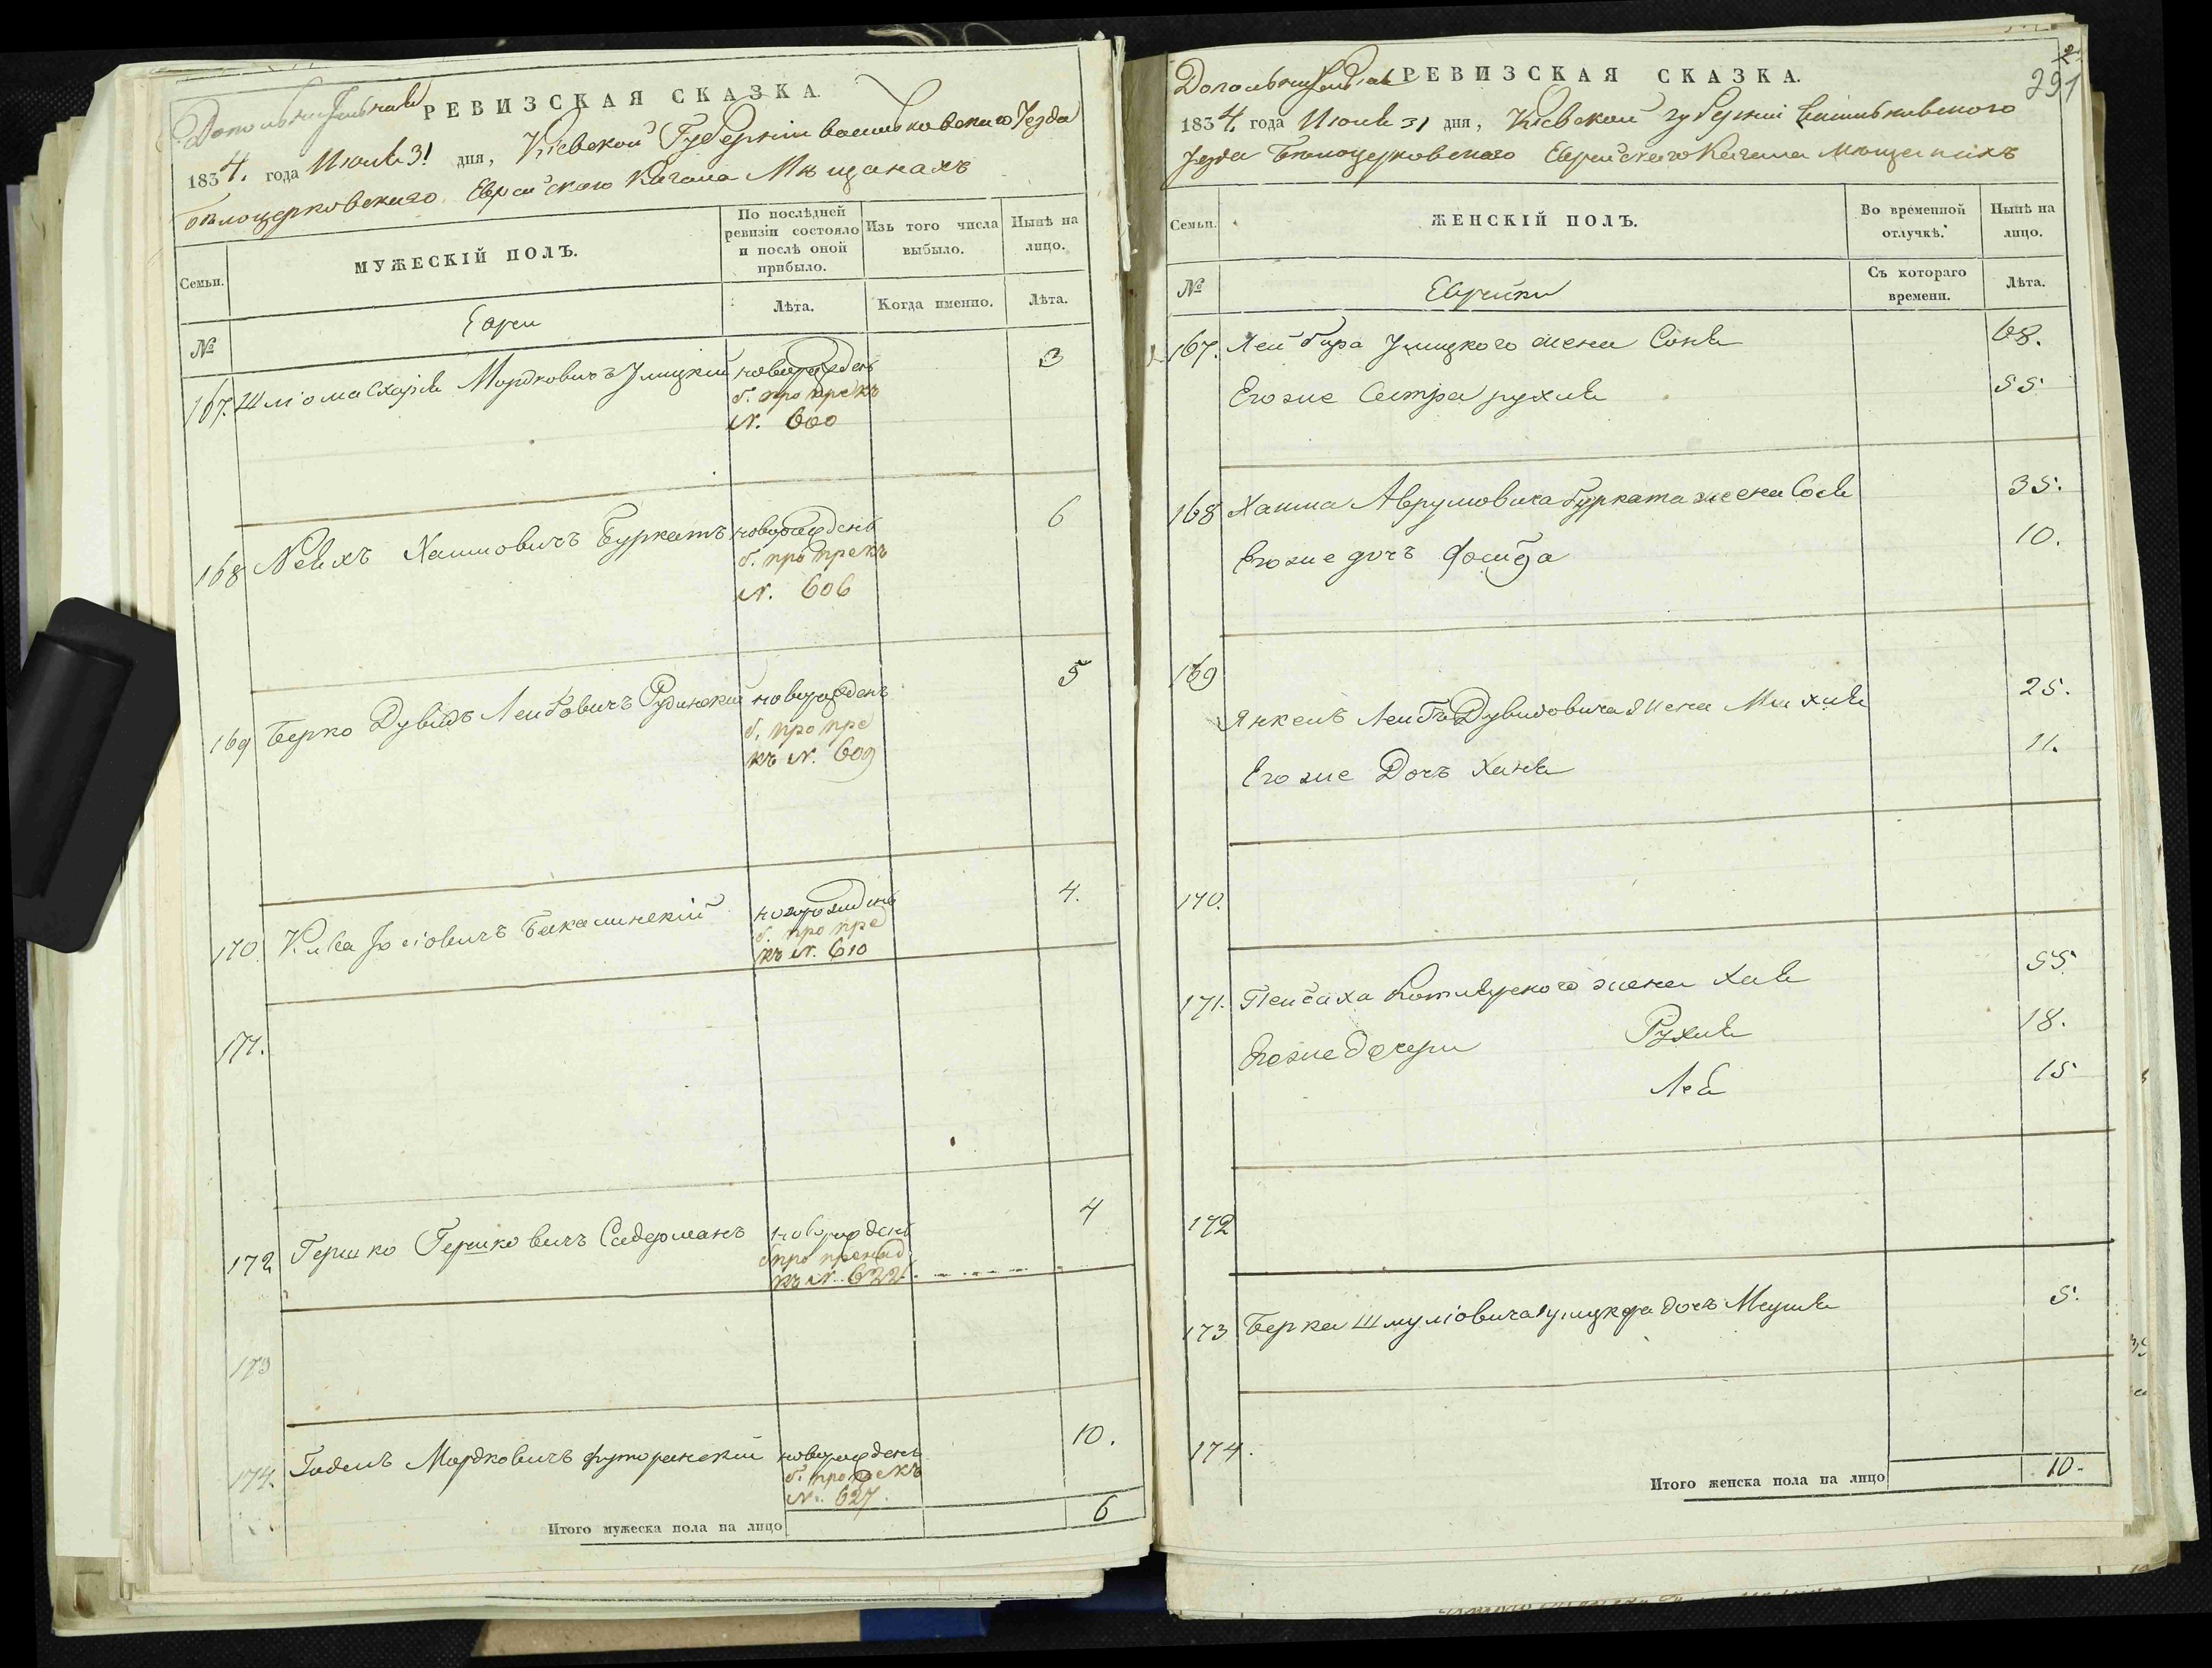 Дополнительная РЕВИЗСКАЯ СКАЗКА.
1834. года Июля 31 дня, Кіевской Губерніи васильковского Уезда
бѣлоцерковского Еврейского Кагала Мѣщанахъ
Семьи.
МУЖЕСКІЙ ПОЛЪ.
По послѣдней ревизіи состояло и послѣ оной прибыло.
Изъ того числа выбыло.
Нынѣ на лицо.
№
Евреи
Лѣта.
Когда именно.
Лѣта.
167. Шліома Мордковичъ Улицкій новорожденъ 3
б. про пре къ
N. 600
168 Хаимовичъ Буркатъ новорожденъ 6
б. про пре къ
N. 606
169 Берко Дувидъ Лейбовичъ Рудинскій новорожденъ 5
б. про пре
къ N. 609
170. Іосіовичъ Бакалинскій новорожденъ 4.
б. про пре
къ N. 610
171.
172 Гершко Гершковичъ Садерманъ новорожденъ 4
б про
къ N. 622
173
174. Мордковичъ футоранскій новорожденъ 10.
б. про пре къ
N. 627.
Итого мужеска пола на лицо 6
Дополнительная РЕВИЗСКАЯ СКАЗКА.
291
1834 года Июля 31 дня, Кіевской губерніи васильковского
Уезда Бѣлоцерковского Еврейского Кагала мѣщанахъ
Семьи.
ЖЕНСКІЙ ПОЛЪ.
Во временной отлучкѣ.
Нынѣ на лицо.
№
Еврейки
Съ котораго времени.
Лѣта.
167. Лейбира Улицкого жена Соня 68.
Его же Сестра рухля 55.
168 Хаима Аврумовича Бурката жена Сося 35.
Его же дочъ Фейга 10.
169
Янкель Лейбъ Дувидовича жена Михля 25.
Его же Дочъ Ханя 11.
170.
171. Пейсаха Котлярского жена Хая 55
Его же дочери Рухля 18.
Лея 15
172
173 Берка Шмуліовича дочъ 5.
174.
Итого женска пола на лицо 10.